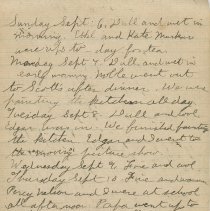 Sunday Sept. 6. Dull and wet in
morning. Ethel and Kate Marken
were up to day for tea.
Monday Sept 7. Dull and wet in
early morning Nettie went out
to Scotts after dinner. We were
painting the kitchen all day.
Tuesday Sept 8. Dull and cool
Edgar was in. We finished painting
the kitchen. Edgar and I went to
the moving picture show.
Wednesday Sept 9. Fine and cool
Thursday Sept 10 Fine and warm
Percy Watson and I were at school
all afternoon Papa went up to